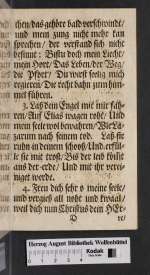 chen/das gehöre bald verschwindt/
und mein zung nicht mehr kan
sprachen/ der verstand sich nicht
besinnt: Bistu doch mein Liecht/
mein Hort/ das Leben/ der Weg/
die Pfort/ Du wirst seelig mich
regieren/ Die recht bahn zum him̃-
mel führen.
3. Laß dein Engel mit mir fah-
ren/ Auf Elias wagen roht/ Und
mein seele wol bewahren/ Wie La-
zarum nach seinem tod. Laß sie
ruhn in deinem schoos/ Und erfül-
le sie mit trost/ Bis der leib kompt
aus der erde/ Und mit ihr verei-
niget werde.
4. Freu dich sehr o meine seele/
und vergiß all noht und quaal/
weil dich nun Christus dein HEr-
D re/
Herzog August Bibliothek Wolfenbüttel